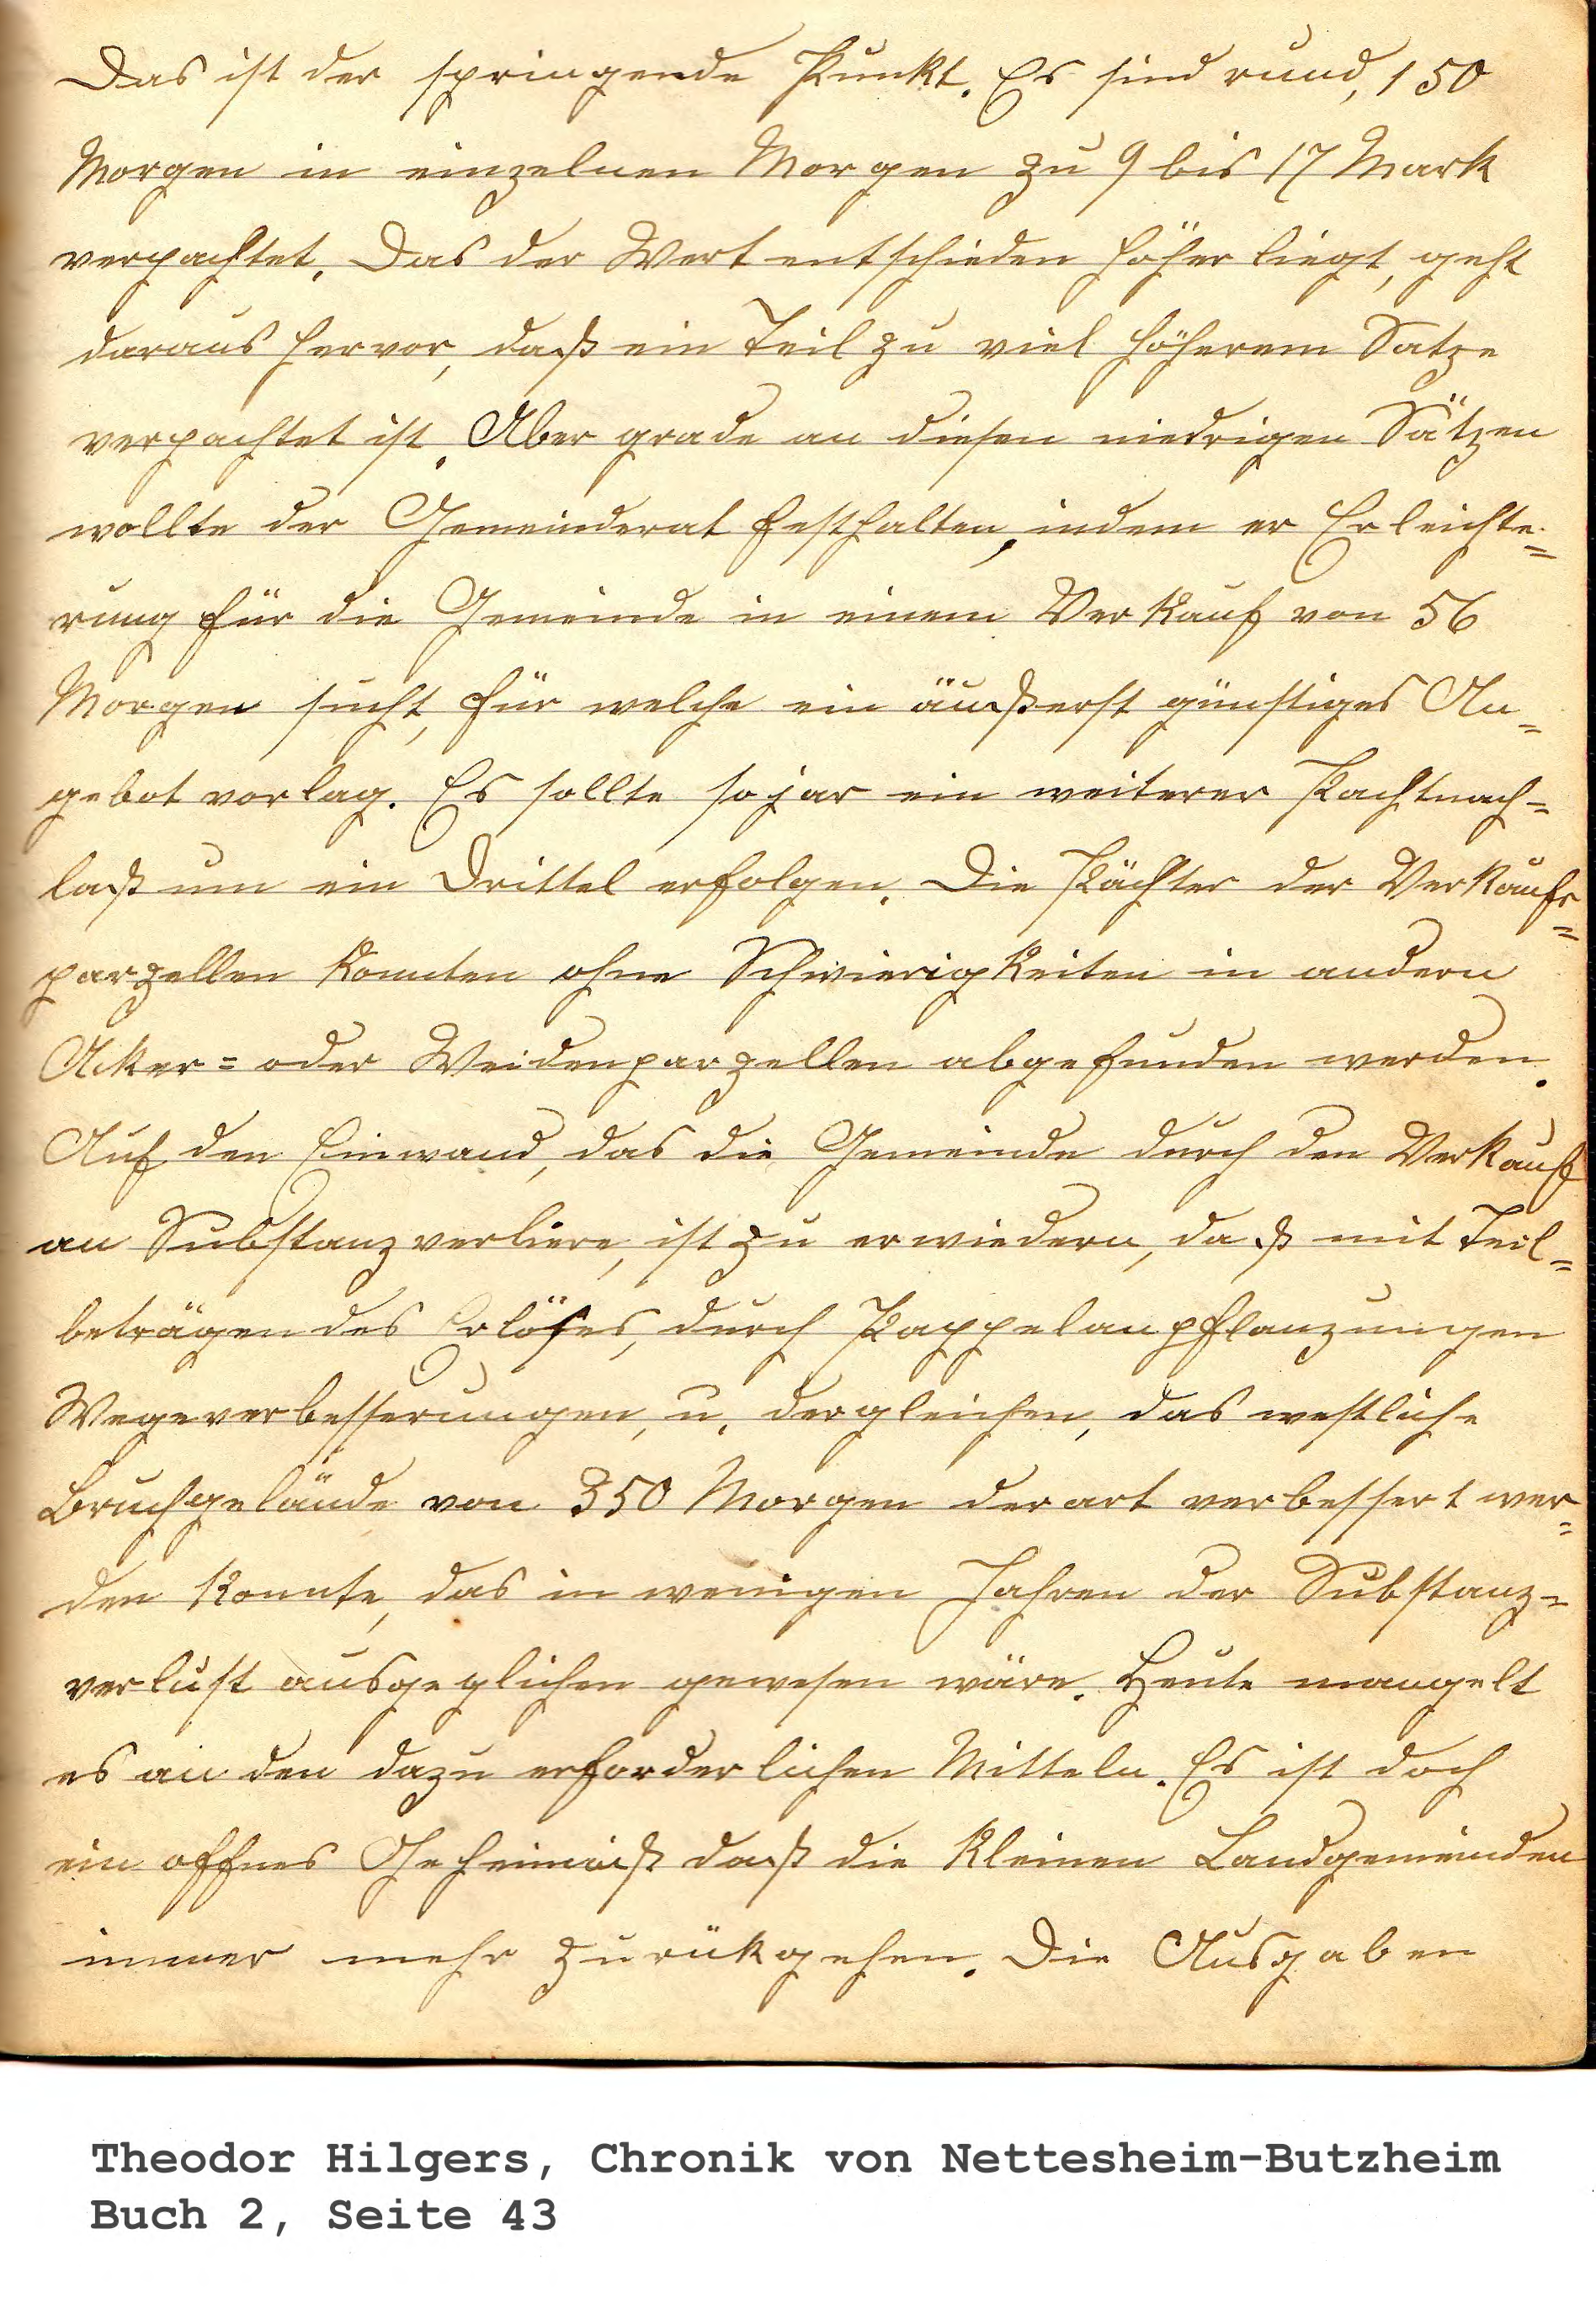 Das ist der springende Punkt. Es sind rund, 150
Morgen in einzelnen Morgen zu 9 bis 17 Mark
verpachtet. Das der Wert entschieden höher liegt, geht
daraus hervor, daß ein Teil zu viel höherem Satze
verpachtet ist. Aber grade an diesen niedrigen Sätzen
wollte der Gemeinderat festhalten, indem er Erleichte=
rung für die Gemeinde in einem Verkauf von 56
Morgen sucht, für welche ein äußerst günstiges An=
gebot vorlag. Es sollte sojar ein weiterer Pachtnach=
laß um ein Drittel erfolgen. Die Pächter der Verkaufs=
parzellen konnten ohne Schwierigkeiten in andern
Acker= oder Weidenparzellen abgefunden werden.
Auf den Einwand, das die Gemeinde durch den Verkauf
an Substanz verliere, ist zu erwiedern, daß mit Teil=
beträgen des Erlöses, durch Pappelanpflanzungen
Wegeverbesserungen, u. dergleichen, das westliche
Bruchgelände von 350 Morgen derart verbessert wer=
den konnte, das in wenigen Jahren der Substanz=
verlust ausgeglichen gewesen wäre. Heute mangelt
es an den dazu erforderlichen Mitteln. Es ist doch
ein offnes Geheimniß daß die kleinen Landgemeinden
immer mehr zurükgehen. Die Ausgaben
Theodor Hilgers, Chronik von Nettesheim-Butzheim
Buch 2, Seite 43